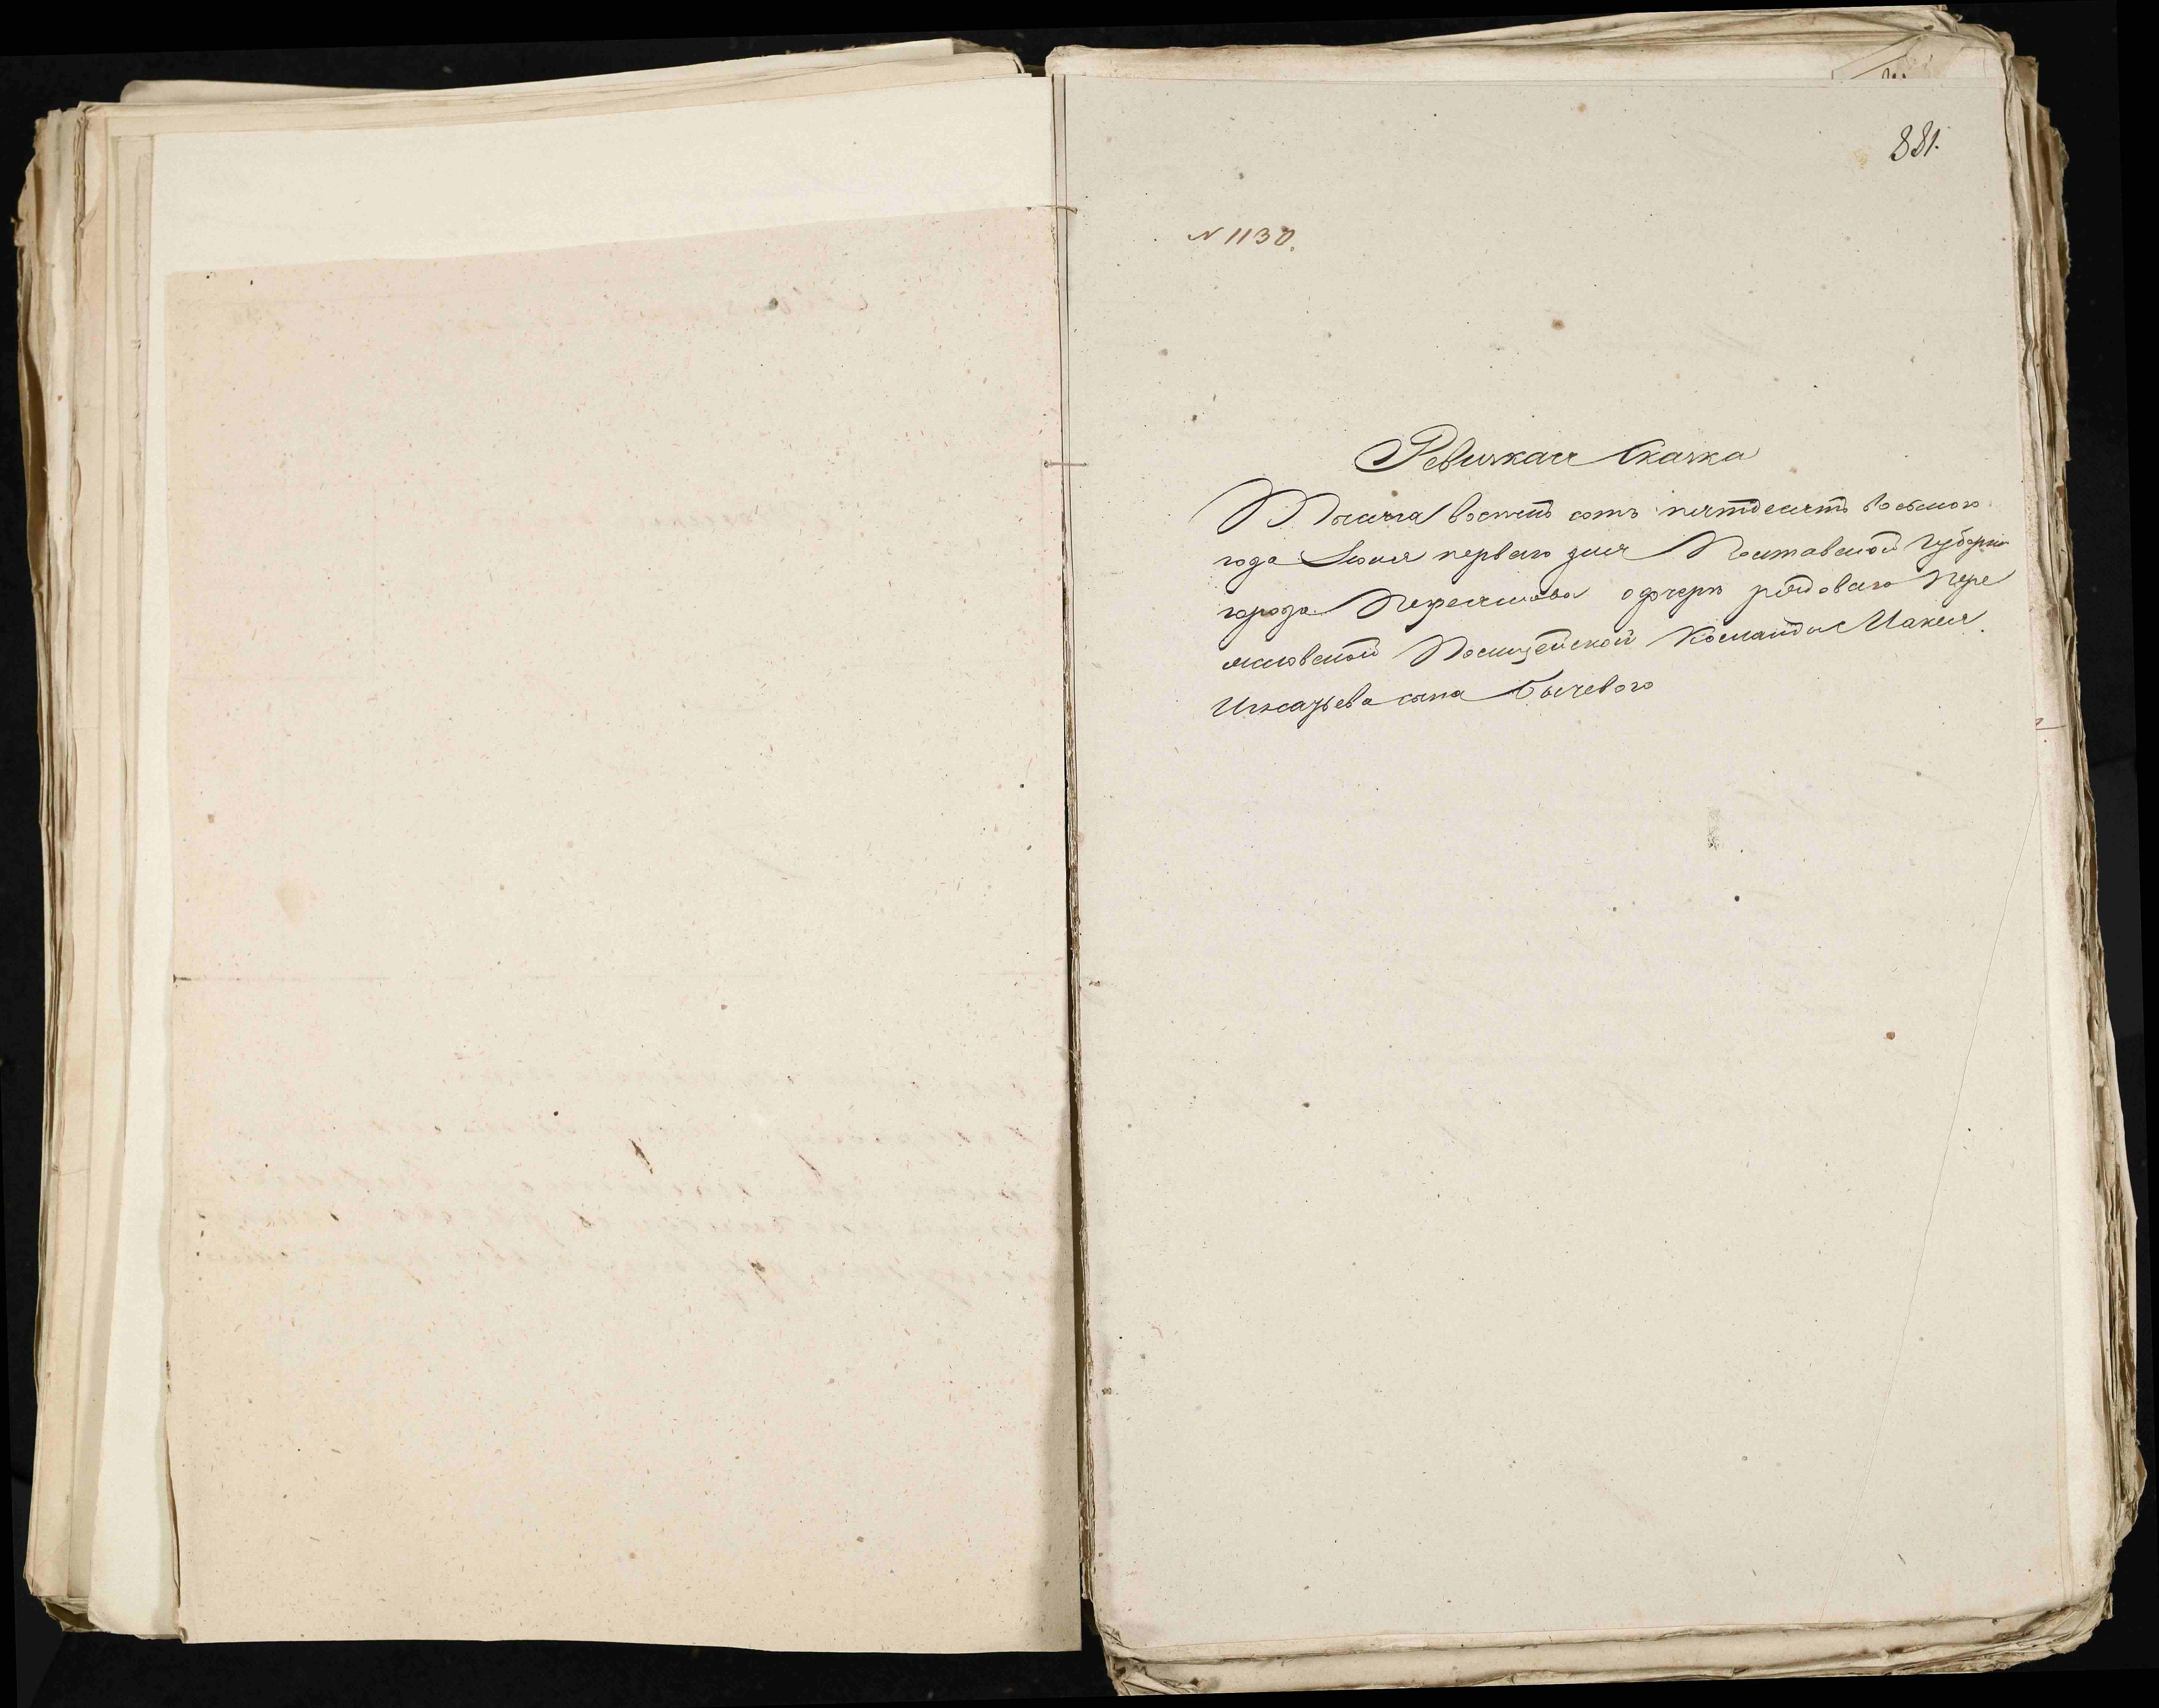 881.
N 1130.
Ревизкая Сказка
Тысяча восемь сотъ пятдесятъ восьмого
года Июня первого дня Полтавской Губернии
города Переяслова о дочери рядового Пере
яславской Полицейской Команды Иакея
сына Бычевого